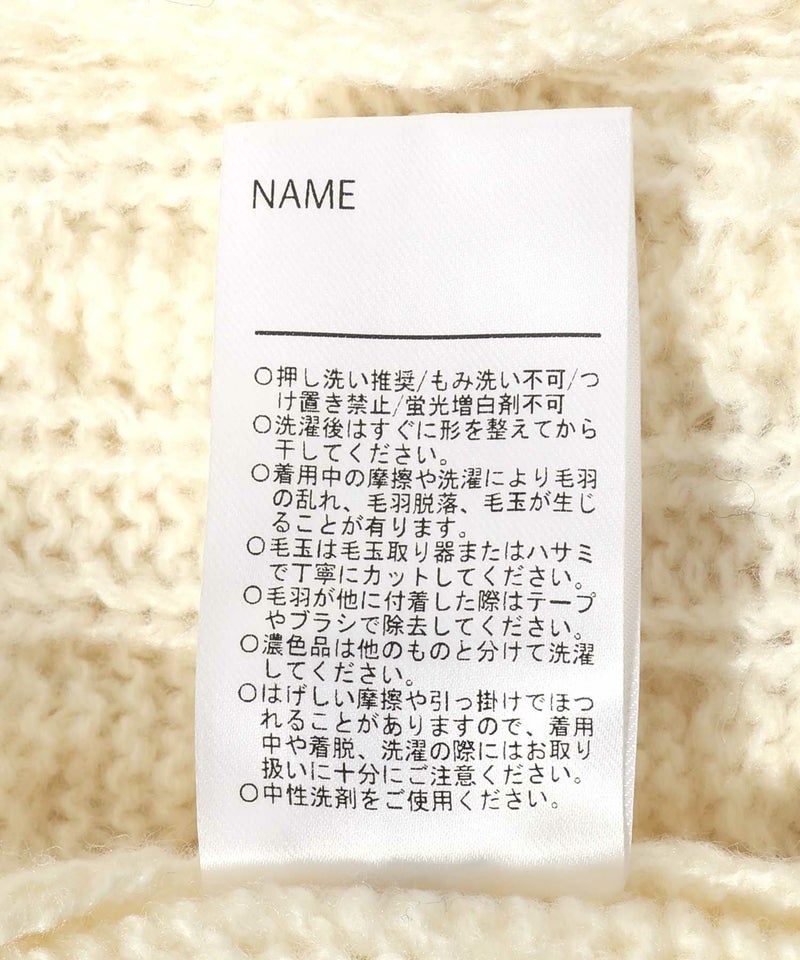 NAME
○押し洗い推奨/もみ洗い不可/つ
け置き禁止/蛍光増白剤不可
○洗濯後はすぐに形を整えてから
干してください。
○着用中の摩擦や洗濯により毛羽
の乱れ、毛羽脱落、毛玉が生じ
ることが有ります。
○毛玉は毛玉取り器またはハサミ
で丁寧にカットしてください。
○毛羽が他に付着した際はテープ
やブラシで除去してください。
○濃色品は他のものと分けて洗濯
してください。
○はげしい摩擦や引っ掛けでほつ
れることがありますので、着用
中や着脱、洗濯の際にはお取り
扱いに十分にご注意ください。
○中性洗剤をご使用ください。